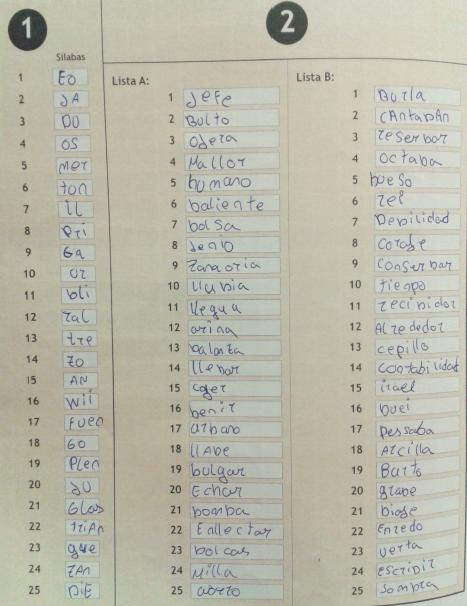 1
2
Sílabas
1 Eo
2 JA
3 DU
4 OS
5 mer
6 ton
7 il
8 Pri
9 Ga
10 Or
11 bli
12 Zal
13 tre
14 Zo
15 AN
16 Wil
17 Fuen
18 Go
19 Plen
20 JU
21 Glos
22 triAn
23 gue
24 ZAn
25 DiE
Lista A:
1 Jefe
2 Bulto
3 Ojera
4 Mallor
5 humano
6 baliente
7 bolsa
8 Jenio
9 Zanaoria
10 llubia
11 llegua
12 orina
13 balanza
14 llebar
15 coger
16 benir
17 urbano
18 llAbe
19 bulgar
20 Echar
21 bomba
22 Enllectar
23 bolcas
24 Milla
25 aborto
Lista B:
1 Burla
2 cAntabAn
3 reserbar
4 octaba
5 hueso
6 rel
7 Devilidad
8 coraje
9 Conserbar
10 tiempo
11 recibidor
12 Alrededor
13 cepillo
14 contabilidad
15 irael
16 buei
17 Pessaba
18 Arcilla
19 Barto
20 grabe
21 biaje
22 Enredo
23 verta
24 escribir
25 Sombra